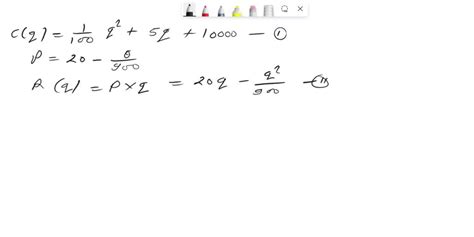 C(q) = 1/100 q² + 5q + 10000 — ①
P = 20 - θ/900
R (q) = P × q = 20q - q²/900 —